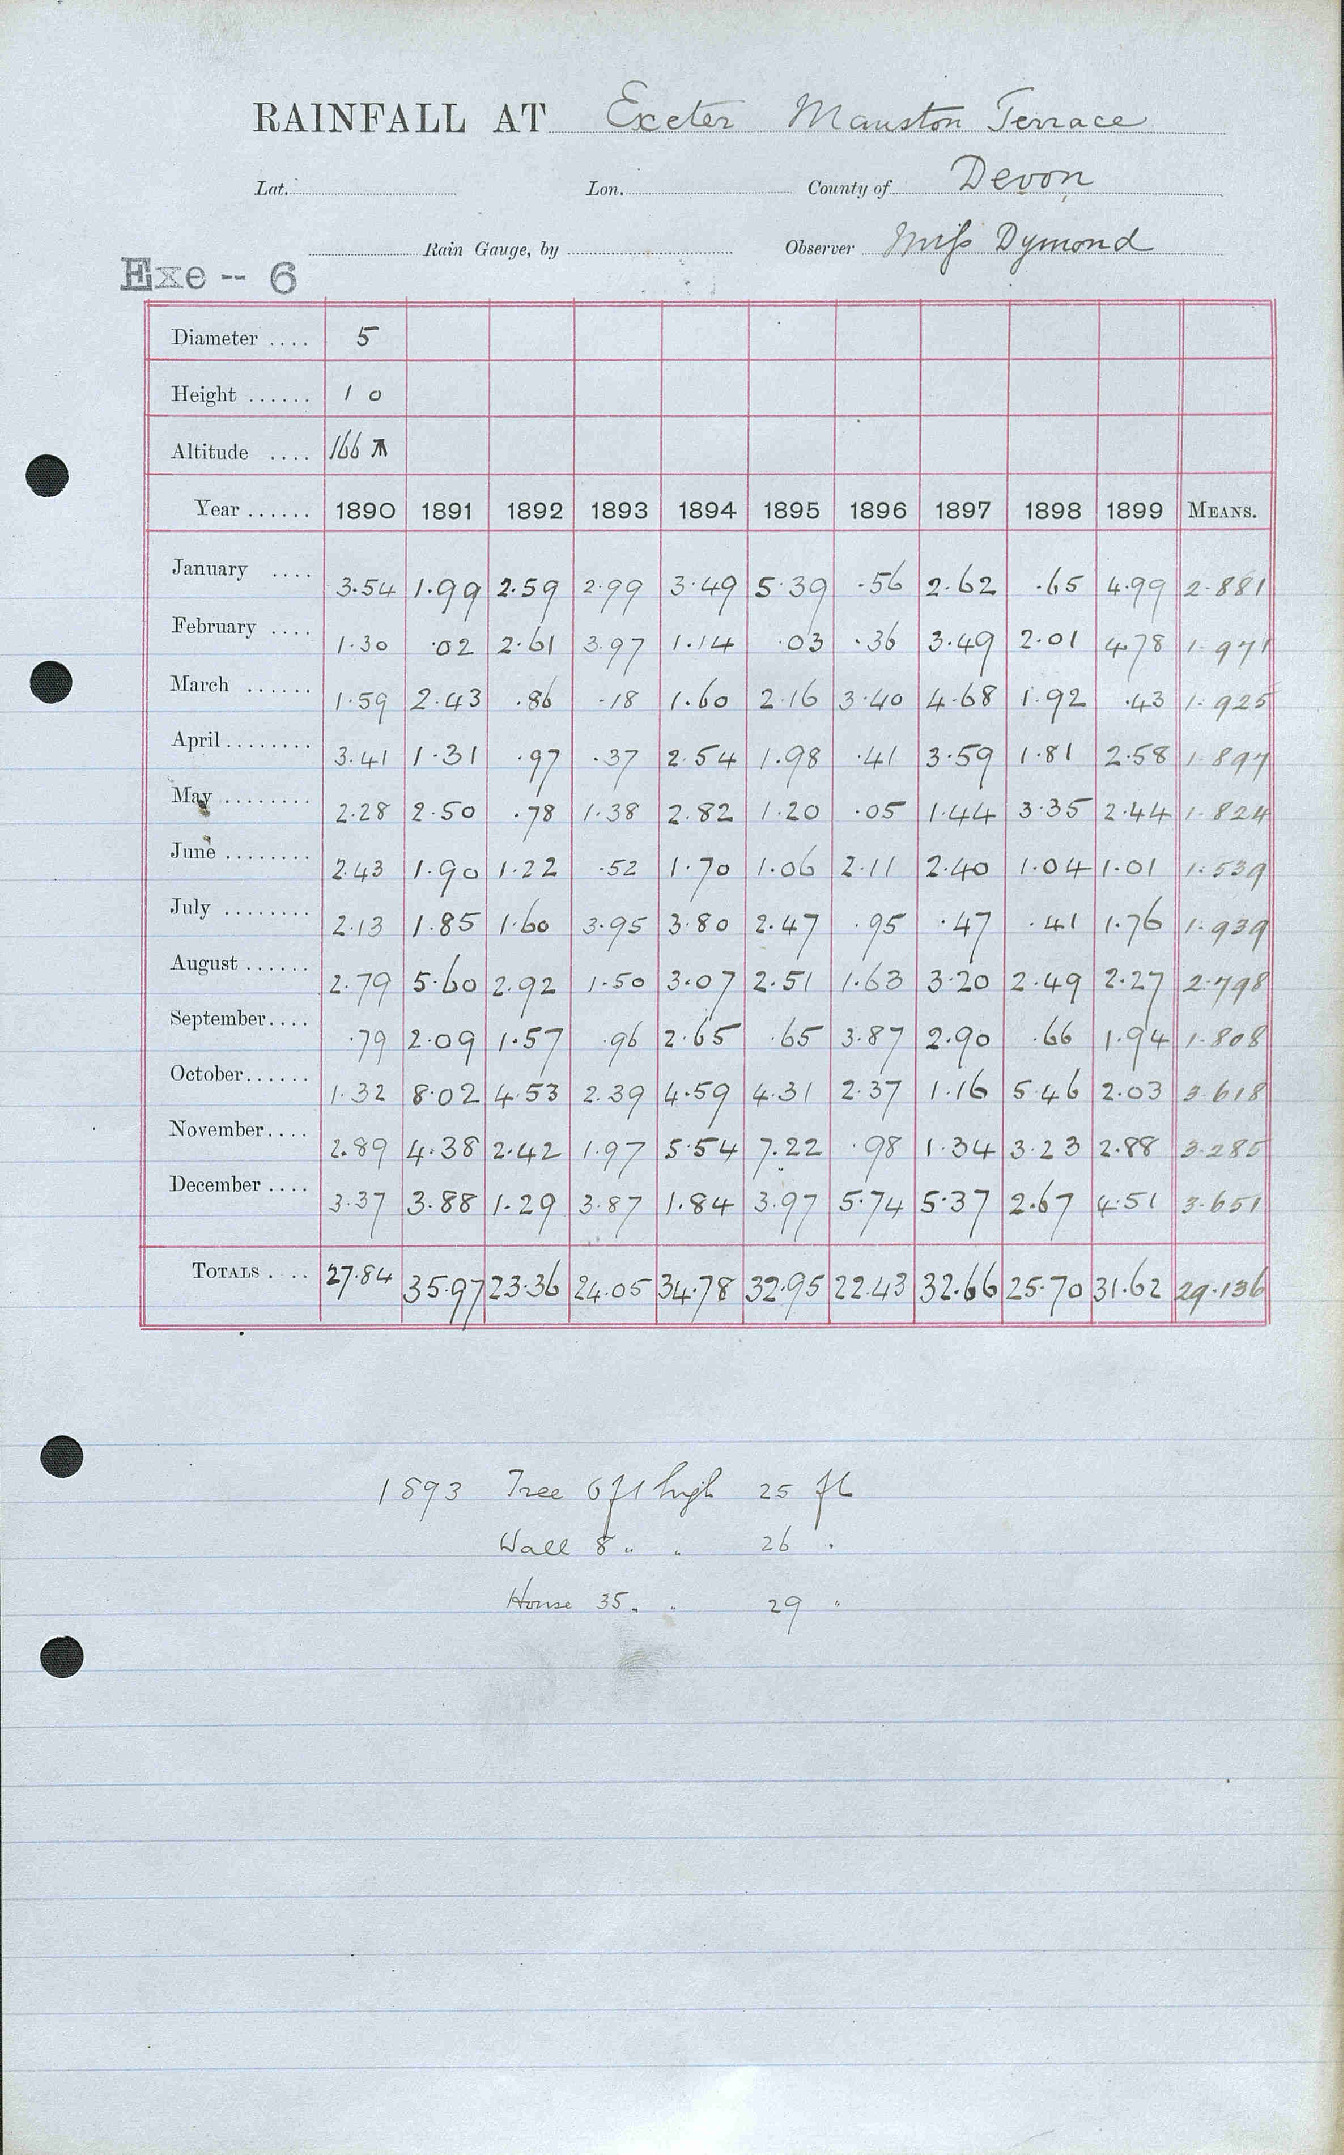 RAINFALL AT Exeter Manston Terrace
Lat. Lon. County of Devon
Rain Gauge, by Observer Miss Dymond
Exe -- 6
Diameter .... 5
Height ...... 1 0
Altitude .... 166
Year ...... 1890 1891 1892 1893 1894 1895 1896 1897 1898 1899 MEANS.
January .... 3.54 1.99 2.59 2.99 3.49 5.39 .56 2.62 .65 4.99 2.881
February .... 1.30 .02 2.61 3.97 1.14 .03 .36 3.49 2.01 4.78 1.971
March ...... 1.59 2.43 .86 .18 1.60 2.16 3.40 4.68 1.92 .43 1.925
April ........ 3.41 1.31 .97 .37 2.54 1.98 .41 3.59 1.81 2.58 1.897
May ........ 2.28 2.50 .78 1.38 2.82 1.20 .05 1.44 3.35 2.44 1.824
June ........ 2.43 1.90 1.22 .52 1.70 1.06 2.11 2.40 1.04 1.01 1.539
July ........ 2.13 1.85 1.60 3.95 3.80 2.47 .95 .47 .41 1.76 1.939
August ...... 2.79 5.60 2.92 1.50 3.07 2.51 1.63 3.20 2.49 2.27 2.798
September .... .79 2.09 1.57 .96 2.65 .65 3.87 2.90 .66 1.94 1.808
October ...... 1.32 8.02 4.53 2.39 4.59 4.31 2.37 1.16 5.46 2.03 3.618
November .... 2.89 4.38 2.42 1.97 5.54 7.22 .98 1.34 3.23 2.88 3.285
December .... 3.37 3.88 1.29 3.87 1.84 3.97 5.74 5.37 2.67 4.51 3.651
TOTALS .... 27.84 35.97 23.36 24.05 34.78 32.95 22.43 32.66 25.70 31.62 29.136
1893 Tree 6 ft high 25 ft
Wall 8 " " 26 "
House 35 " " 29 "